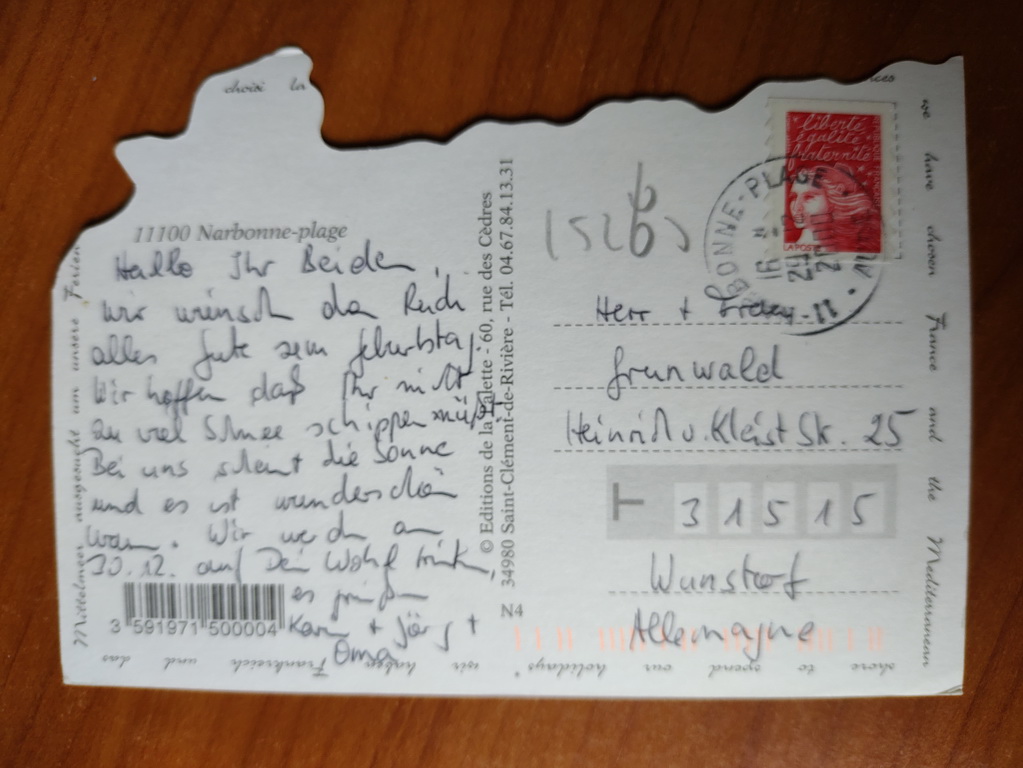 choisi la
11100 Narbonne-plage
Hallo Ihr Beiden,
wir wünsch
alles gute zum geburtstag.
Wir hoffen daß Ihr nicht
zu viel Schnee schippen müßt
Bei uns scheint die Sonne
und es ist wunderschön
warm. Wir werden am
30.12. auf Dein Wohl trinken,
es grüßen
Karin + Jörg +
Oma
3 591971 500004
© Editions de la Valette - 60, rue des Cèdres
34980 Saint-Clément-de-Rivière - Tél. 04.67.84.13.31
N4
liberté
égalité
fraternité
LA POSTE
BONNE-PLAGE
Herr +
Grunwald
Heinrich v. Kleist Str. 25
T 31515
Wunstorf
Allemagne
Mittelmeer ausgesucht um unsere Ferien
we have chosen France and the Mediterranean
shore to spend our holidays" "wir haben Frankreich und das